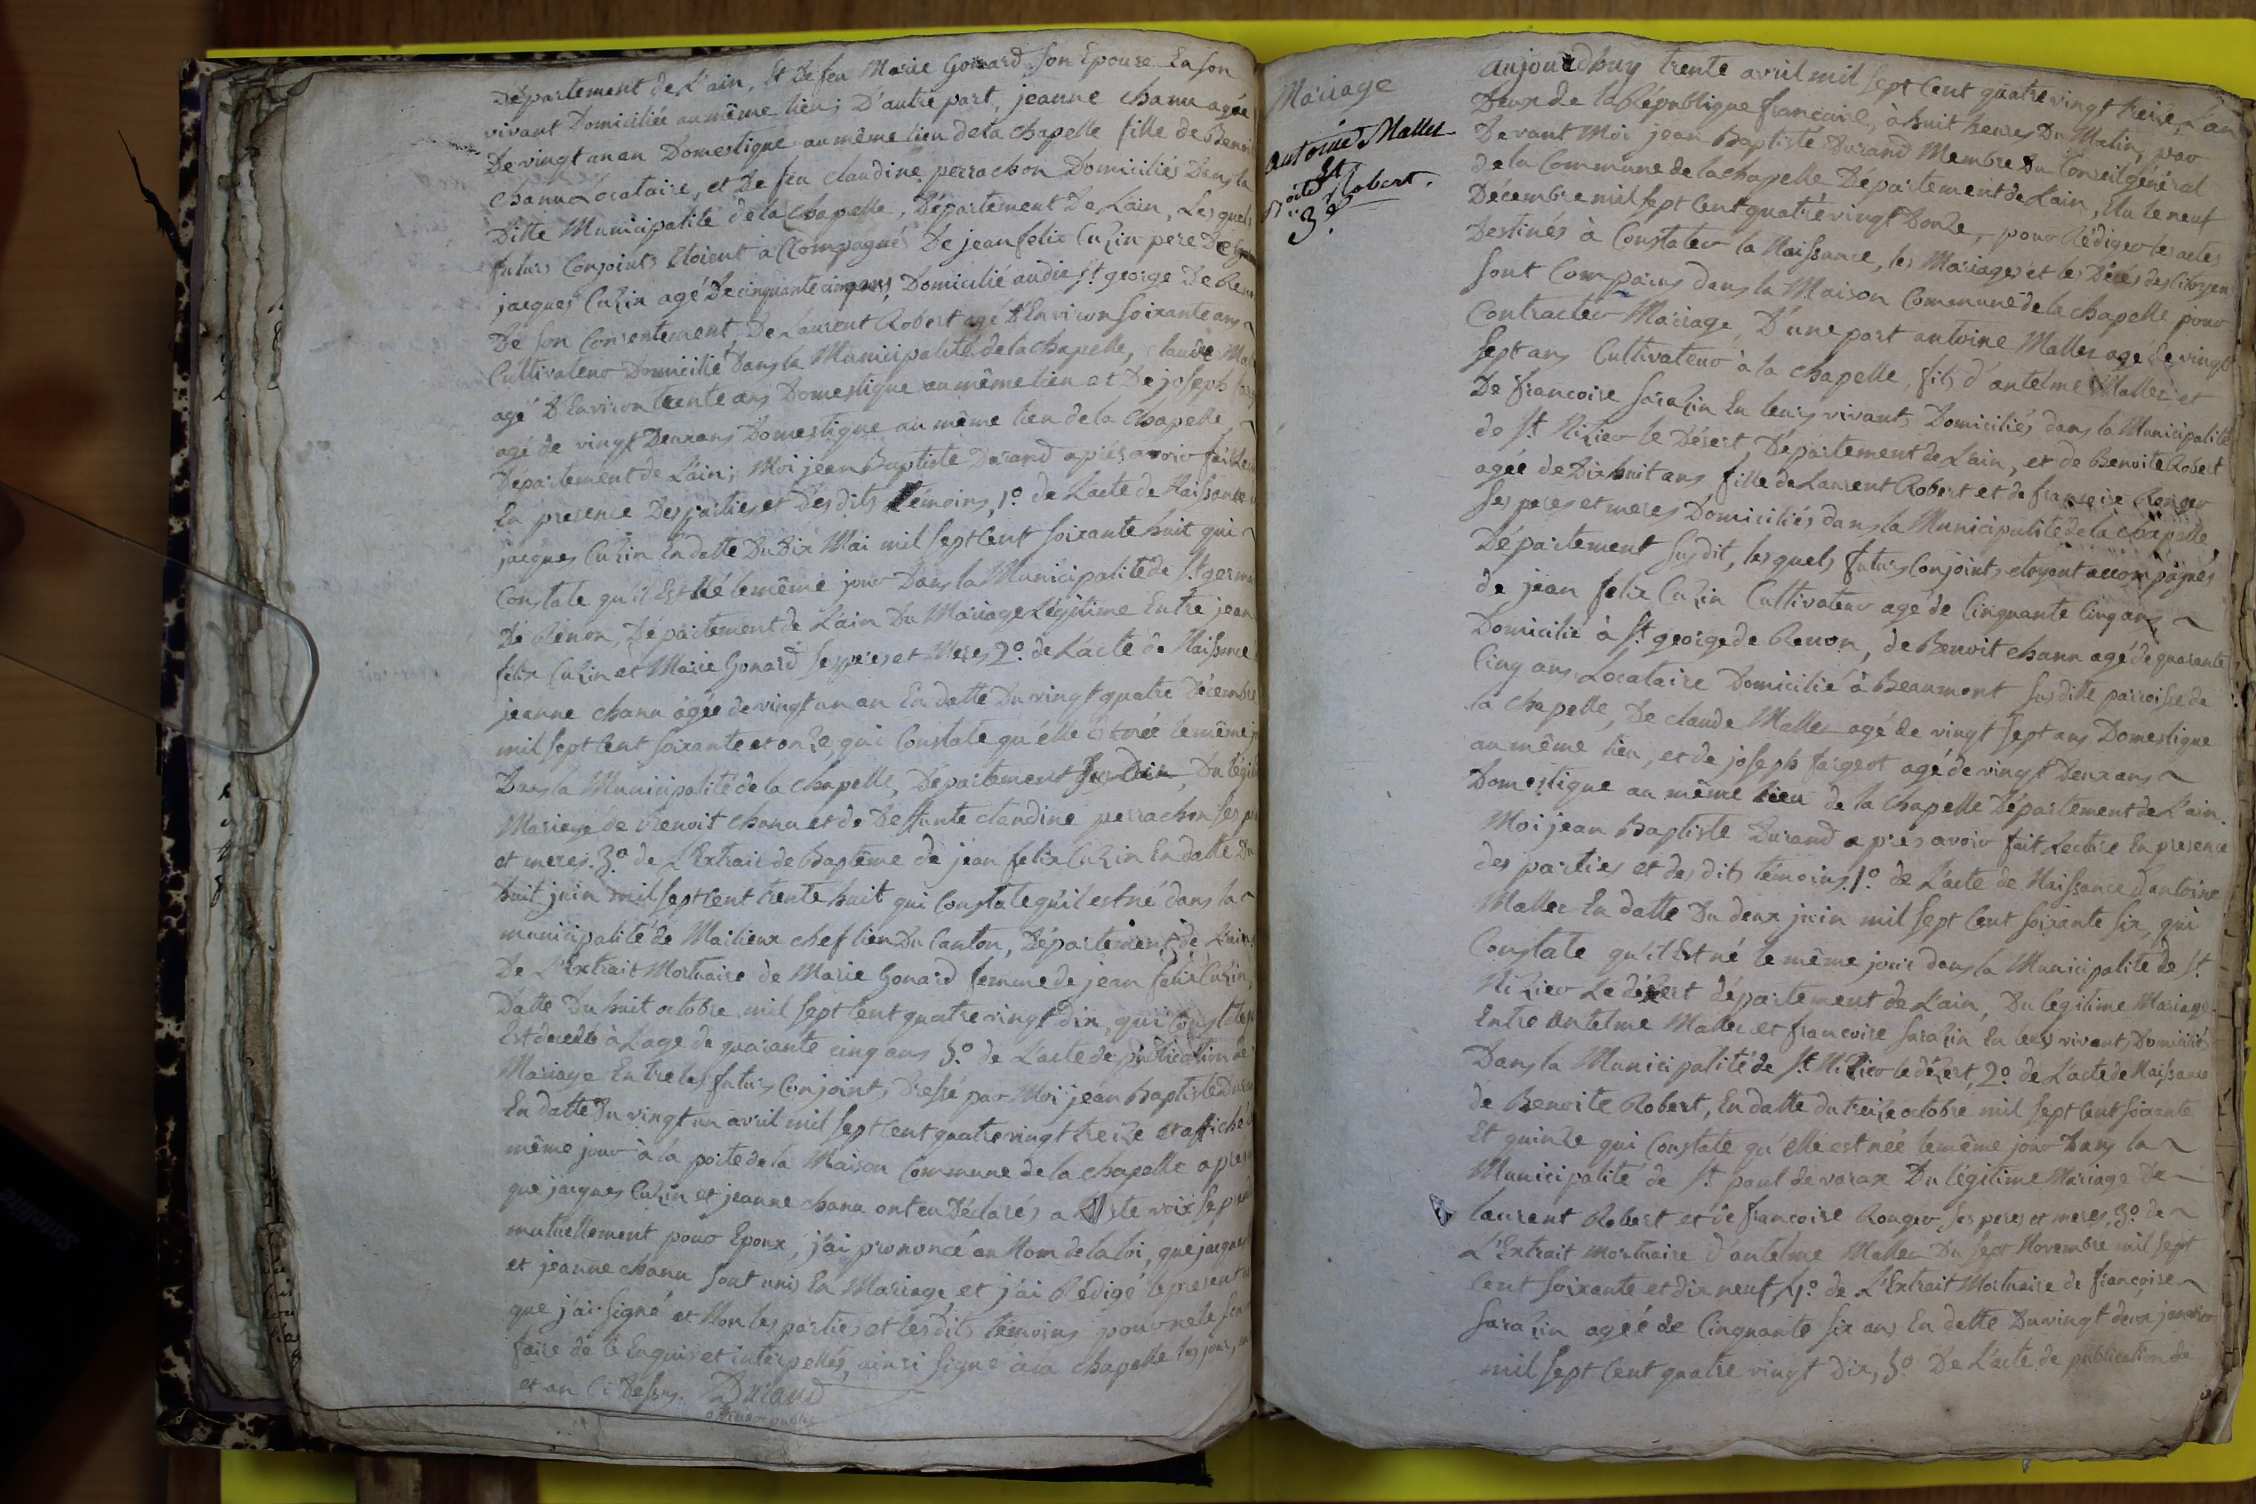 Département de L'ain, Et De feu Marie Gonard Son Epouse En son
vivant Domiciliée au même lieu; D'autre part, jeanne chanu agée
De vingt un an Domestique au même lieu de la chapelle fille de Benoit
chanu Locataire, et De feu claudine perrachon Domiciliés Dans la
Ditte Municipalité de la chapelle, Département De Lain, Lesquels
futurs Conjoints Etoient accompagnés De jean felix Cuzin pere De
jacques Cuzin agé De cinquante cinq ans, Domicilié audit St george De Renon
De son Consentement, De Laurent Robert agé D'Environ soixante ans
Cultivateur Domicilié Dans la Municipalité de la chapelle, claude
agé D'Environ trente ans Domestique au même lieu et De joseph
agé de vingt Deux ans Domestique au même lieu de la chapelle,
Département de Lain; Moi jean Baptiste Durand après avoir fait
En presence Des parties et Des dits témoins, 1º. de L'acte de Naissance
jacques Cuzin En datte Du Dix Mai mil sept Cent soixante huit qui
Constate qu'il Est Né le même jour Dans la Municipalité de St germain
De Renon, Département de Lain Du Mariage Légitime Entre jean
felix Cuzin et Marie Gonard ses peres et Meres 2º. de L'acte de Naissance
jeanne chanu agée de vingt un an En datte Du vingt quatre Décembre
mil sept Cent soixante et onze, qui Constate qu'elle Est née le même
Dans la Municipalité de la chapelle, Département Du
Mariage de Benoit chanu et de Deffunte claudine perrachon ses
et meres. 3º. de L'Extrait de Baptême de jean felix Cuzin En datte Du
huit juin mil sept Cent trente huit qui Constate qu'il est né dans la
municipalité de Mailieux chef lieu Du Canton, Département de Lain
De L'Extrait Mortuaire de Marie Gonard femme de jean felix Cuzin,
Datte Du huit octobre mil sept Cent quatre vingt dix, qui Constate
Est décedée à L'age de quarante cinq ans 5º. de L'acte de publication de
Mariage Entre les futurs Conjoints Dressé par Moi jean Baptiste Durand
En datte Du vingt un avril mil sept Cent quatre vingt treize et affiché
même jour à la porte de la Maison Commune de la chapelle après
que jacques Cuzin et jeanne chanu ont eu Déclarés a voix
mutuellement pour Epoux, j'ai prononcé au Nom de la loi, que jacques
et jeanne chanu sont unis En Mariage et j'ai Rédigé le present
que j'ai signé et Non les parties et les dits témoins pour ne le
faire de ce Enquis et interpellés, ainsi signé à la chapelle les jour,
et an Ci Dessus. Durand
officier public
Mariage
antoine Maller
Et
Robert.
3e.
Aujourd'huy trente avril mil sept Cent quatre vingt treize, L'an
Deux de la République francaise, à huit heures Du Matin, par
Devant Moi jean Baptiste Durand Membre Du Conseil général
de la Commune de la chapelle Département de Lain, Elu le neuf
Décembre mil sept Cent quatre vingt Douze, pour Rédiger les actes
Destinés à Constater la Naissance, les Mariages et les Décès des Citoyens
sont Comparus dans la Maison Commune de la chapelle pour
Contracter Mariage, D'une part antoine Maller agé de vingt
sept ans Cultivateur à la chapelle, fils d'antelme Maller et
De francoise sarazin En leurs vivants Domiciliés dans la Municipalité
de St Nizier le Désert Département de Lain, et de Benoite Robert
agée de Dix huit ans fille de Laurent Robert et de francoise Ronger
ses peres et meres Domiciliés dans la Municipalité de la chapelle,
Département susdit, lesquels futurs Conjoints etoyent accompagnés
de jean felix Cuzin Cultivateur agé de Cinquante Cinq ans
Domicilié à St george de Renon, de Benoit chanu agé de quarante
Cinq ans Locataire Domicilié à Beaumont susditte parroisse de
la chapelle, De claude Maller agé de vingt sept ans Domestique
au même lieu, et de joseph fargeot agé de vingt Deux ans
Domestique au même lieu de la chapelle Département de Lain.
Moi jean Baptiste Durand après avoir fait Lecture En presence
des parties et des dits témoins 1º. de L'acte de Naissance d'antoine
Maller En datte Du deux juin mil sept Cent soixante six, qui
Constate qu'il Est né le même jour dans la Municipalité de St
Nizier Le désert département de Lain, Du légitime Mariage
Entre Antelme Maller et francoise sarazin En leurs vivants Domiciliés
Dans la Municipalité de St Nizier le dézert, 2º. de L'acte de Naissance
de Benoite Robert, En datte du treize octobre mil sept Cent soixante
Et quinze qui Constate qu'elle est née le même jour Dans la
Municipalité de St paul de varax Du légitime Mariage De
laurent Robert et de francoise Ronger ses peres et meres, 3º. de
L'Extrait mortuaire d'antelme Maller Du sept Novembre mil sept
Cent soixante et dix neuf, 4º. de L'Extrait Mortuaire de francoise
sarazin agée de Cinquante six ans En datte Du vingt deux janvier
mil sept Cent quatre vingt Dix, 5º. De L'acte de publication de